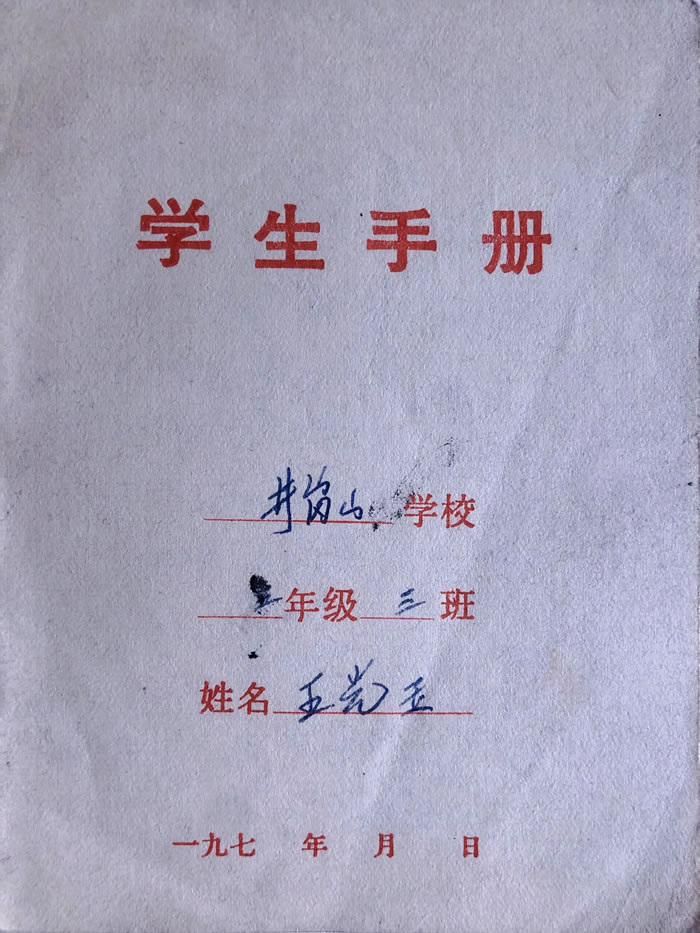 学生手册
井岗山学校
年级三班
姓名王
一九七 年 月 日